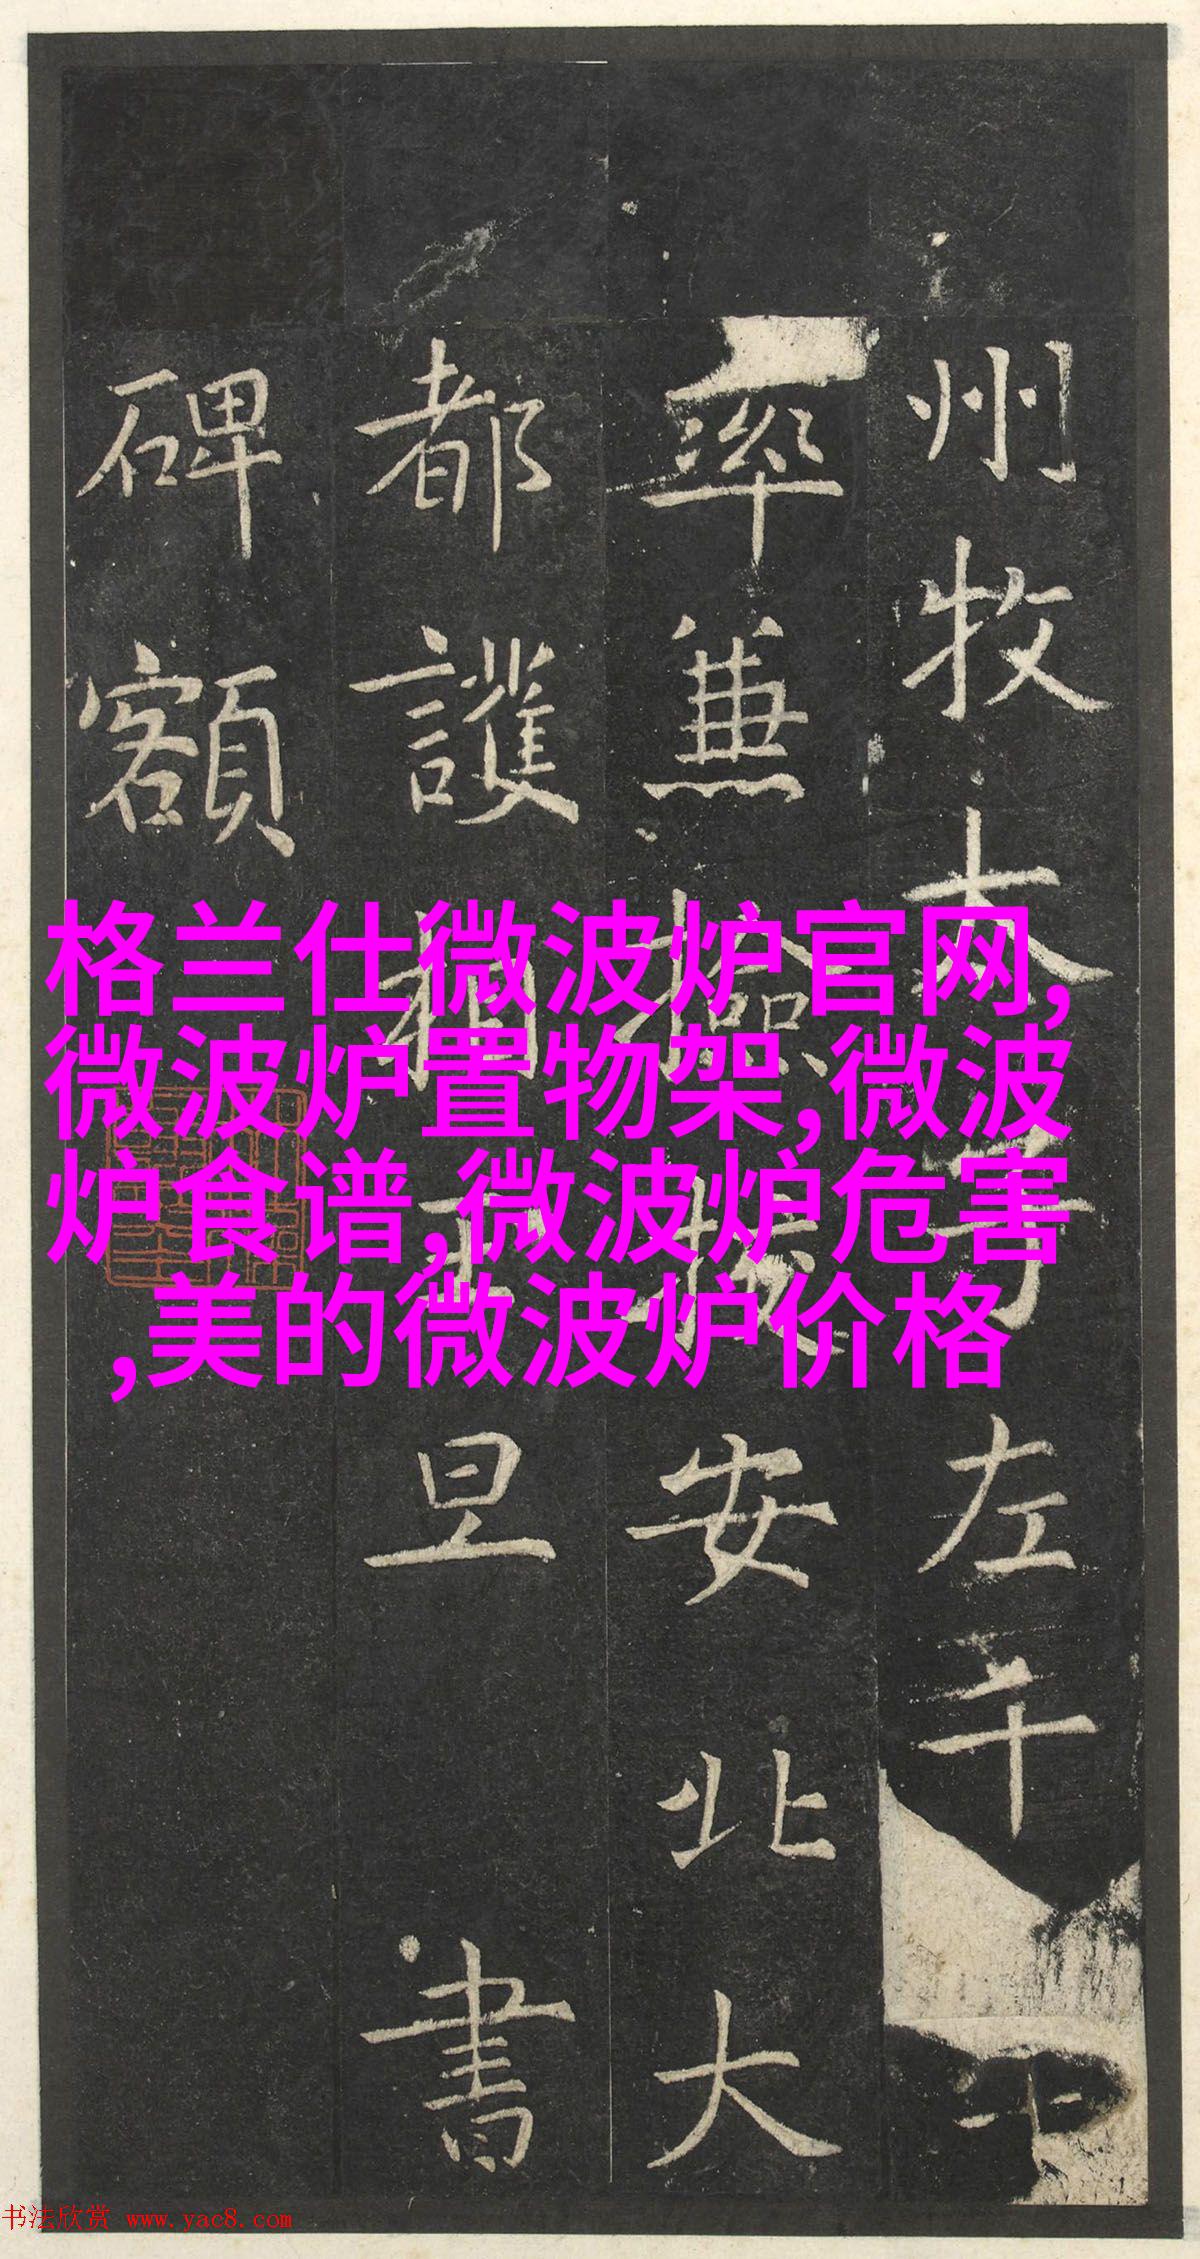 州牧太子左千
率兼檢挍安北大
都護相王旦書
碑額
格兰仕微波炉官网,
微波炉置物架,微波
炉食谱,微波炉危害
,美的微波炉价格
书法欣赏 www.yac8.com